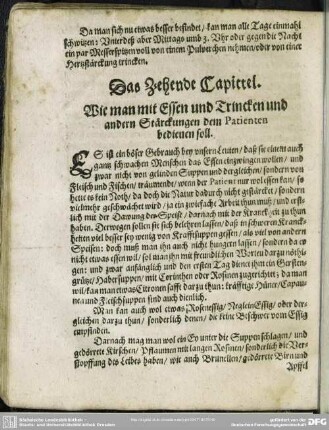 Da man sich nu etwas besser befindet / kan man alle Tage einmahl
schwitzen: Unterdeß aber Mittags umb 3. Uhr oder gegen die Nacht
ein par Messerspitzen voll von einem Pulverchen nehmen / oder von einer
Hertzstärckung trincken.
Das Zehende Capittel.
Wie man mit Essen und Trincken und
andern Stärckungen dem Patienten
bedienen soll.
ES ist ein böser Gebrauch bey unsern Leuten / daß sie einem auch
gantz schwachen Menschen das Essen einzwingen wollen / und
zwar nicht von gelinden Suppen und dergleichen / sondern von
Fleisch und Fischen / wenn der Patient nur wol essen kan / so
hette es kein Noth / da doch die Natur dadurch nicht gestärcket / sondern
vielmehr geschwächet wird / ja ein zwiefache Arbeit thun muß / und erst-
lich mit der Dawung des Speise / darnach mit der Kranckheit zu thun
haben. Derwegen sollen sie sich belehren lassen / daß in schweren Kranck-
heiten viel besser sey wenig von Krafftsuppen gessen / als viel von andern
Speisen: doch muß man ihn auch nicht hungern lassen / sondern da er
nicht etwas essen wil / sol man ihn mit freundlichen Worten darzu nöthi-
gen: und zwar anfänglich und den ersten Tag dienet ihm ein Gersten-
grütz / Habersuppen / mit Corinthen oder Rosinen zugerichtet; da man
wil / kan man etwas Citronensafft darzu thun: kräfftige Hüner / Capau-
nen und Fleischsuppen sind auch dienlich.
Man kan auch wol etwas Rosenessig / Neglein Essig / oder der-
gleichen darzu thun / sonderlich denen / die keine Beschwer vom Essig
empfinden.
Darnach mag man wol ein Ey unter die Suppen schlagen / und
gedörrete Kirschen / Pflaumen mit langen Rosinen / sonderlich die Ver-
stopffung des Leibes haben / wie auch Brunellen / gedörrete Birn und
Apffel